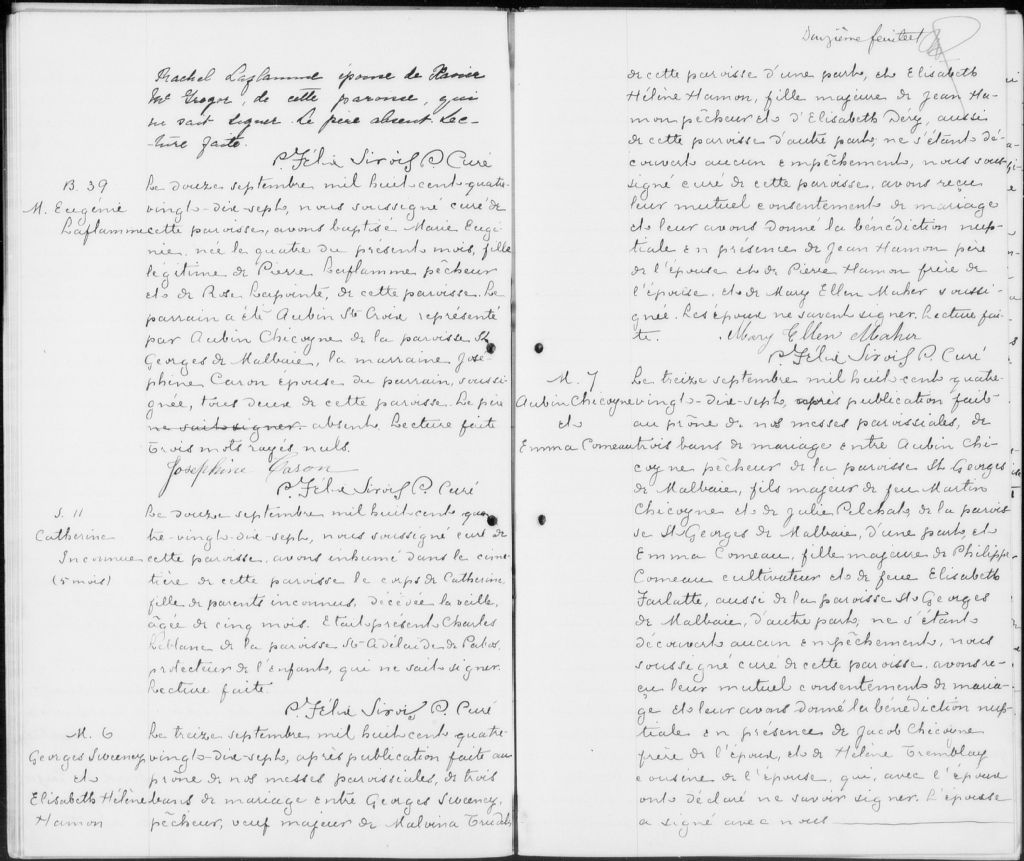 Rachel Laflamme épouse de Xavier
Mc Gregor, de cette paroisse, qui
ne sait signer. Le père absent. Lec-
ture faite.
P. Félix Sirois P. Curé
B. 39
M. Eugénie
Laflamme
Le douze septembre mil huit cent quatre-
vingt-dix-sept, nous soussigné curé de
cette paroisse, avons baptisé Marie Eugé
nie, née le quatre du présent mois, fille
légitime de Pierre Laflamme pêcheur
et de Rose Lapointe, de cette paroisse. Le
parrain a été Aubin Ste Croix représenté
par Aubin Chicoyne de la paroisse St
Georges de Malbaie, la marraine José-
phine Caron épouse du parrain, soussi-
gnée, tous deux de cette paroisse. Le père
ne sait signer. absent. Lecture faite
Trois mots rayés nuls.
Josephine Caron
P. Félix Sirois P. Curé
S. 11
Catherine
Inconnue
(5 mois)
Le douze septembre mil huit cent qua
tre-vingt-dix-sept, nous soussigné curé de
cette paroisse, avons inhumé dans le cime-
tière de cette paroisse le corps de Catherine,
fille de parents inconnus, décédée la veille,
âgée de cinq mois. Etait présent Charles
Leblanc de la paroisse Ste Adélaïde de Pabos,
protecteur de l'enfant, qui ne sait signer.
Lecture faite.
P. Félix Sirois P. Curé
M. 6
Georges Sweeney
et
Elisabeth Hélène
Hamon
Le treize septembre mil huit cent quatre
vingt-dix-sept, après publication faite au
prône de nos messes paroissiales, de trois
bans de mariage entre Georges Sweeney,
pêcheur, veuf majeur de Malvina Trudel,
Douzième feuillet
de cette paroisse d'une part, et Elisabeth
Hélène Hamon, fille majeure de Jean Ha-
mon pêcheur et d'Elisabeth Déry, aussi
de cette paroisse d'autre part, ne s'étant dé-
couvert aucun empêchement, nous sous-
signé curé de cette paroisse, avons reçu
leur mutuel consentement de mariage
et leur avons donné la bénédiction nup-
tiale en présence de Jean Hamon père
de l'épouse et de Pierre Hamon frère de
l'épouse, et de Mary Ellen Maher soussi-
gnée. Les époux ne savent signer. Lecture fai-
te.
Mary Ellen Maher
P. Félix Sirois P. Curé
M. 7
Aubin Chicoyne
et
Emma Comeau
Le treize septembre mil huit cent quatre-
vingt-dix-sept, après publication faite
au prône de nos messes paroissiales, de
trois bans de mariage entre Aubin Chi-
coyne pêcheur de la paroisse St Georges
de Malbaie, fils majeur de feu Martin
Chicoyne et de Julie Pelchat, de la parois-
se St Georges de Malbaie, d'une part, et
Emma Comeau, fille majeure de Philippe
Comeau cultivateur et de feue Elisabeth
Farlatte, aussi de la paroisse St Georges
de Malbaie, d'autre part, ne s'étant
découvert aucun empêchement, nous
soussigné curé de cette paroisse, avons re-
çu leur mutuel consentement de maria-
ge et leur avons donné la bénédiction nup-
tiale en présence de Jacob Chicoyne
frère de l'époux, et de Hélène Tremblay
cousine de l'épouse, qui, avec l'époux
ont déclaré ne savoir signer. L'épouse
a signé avec nous